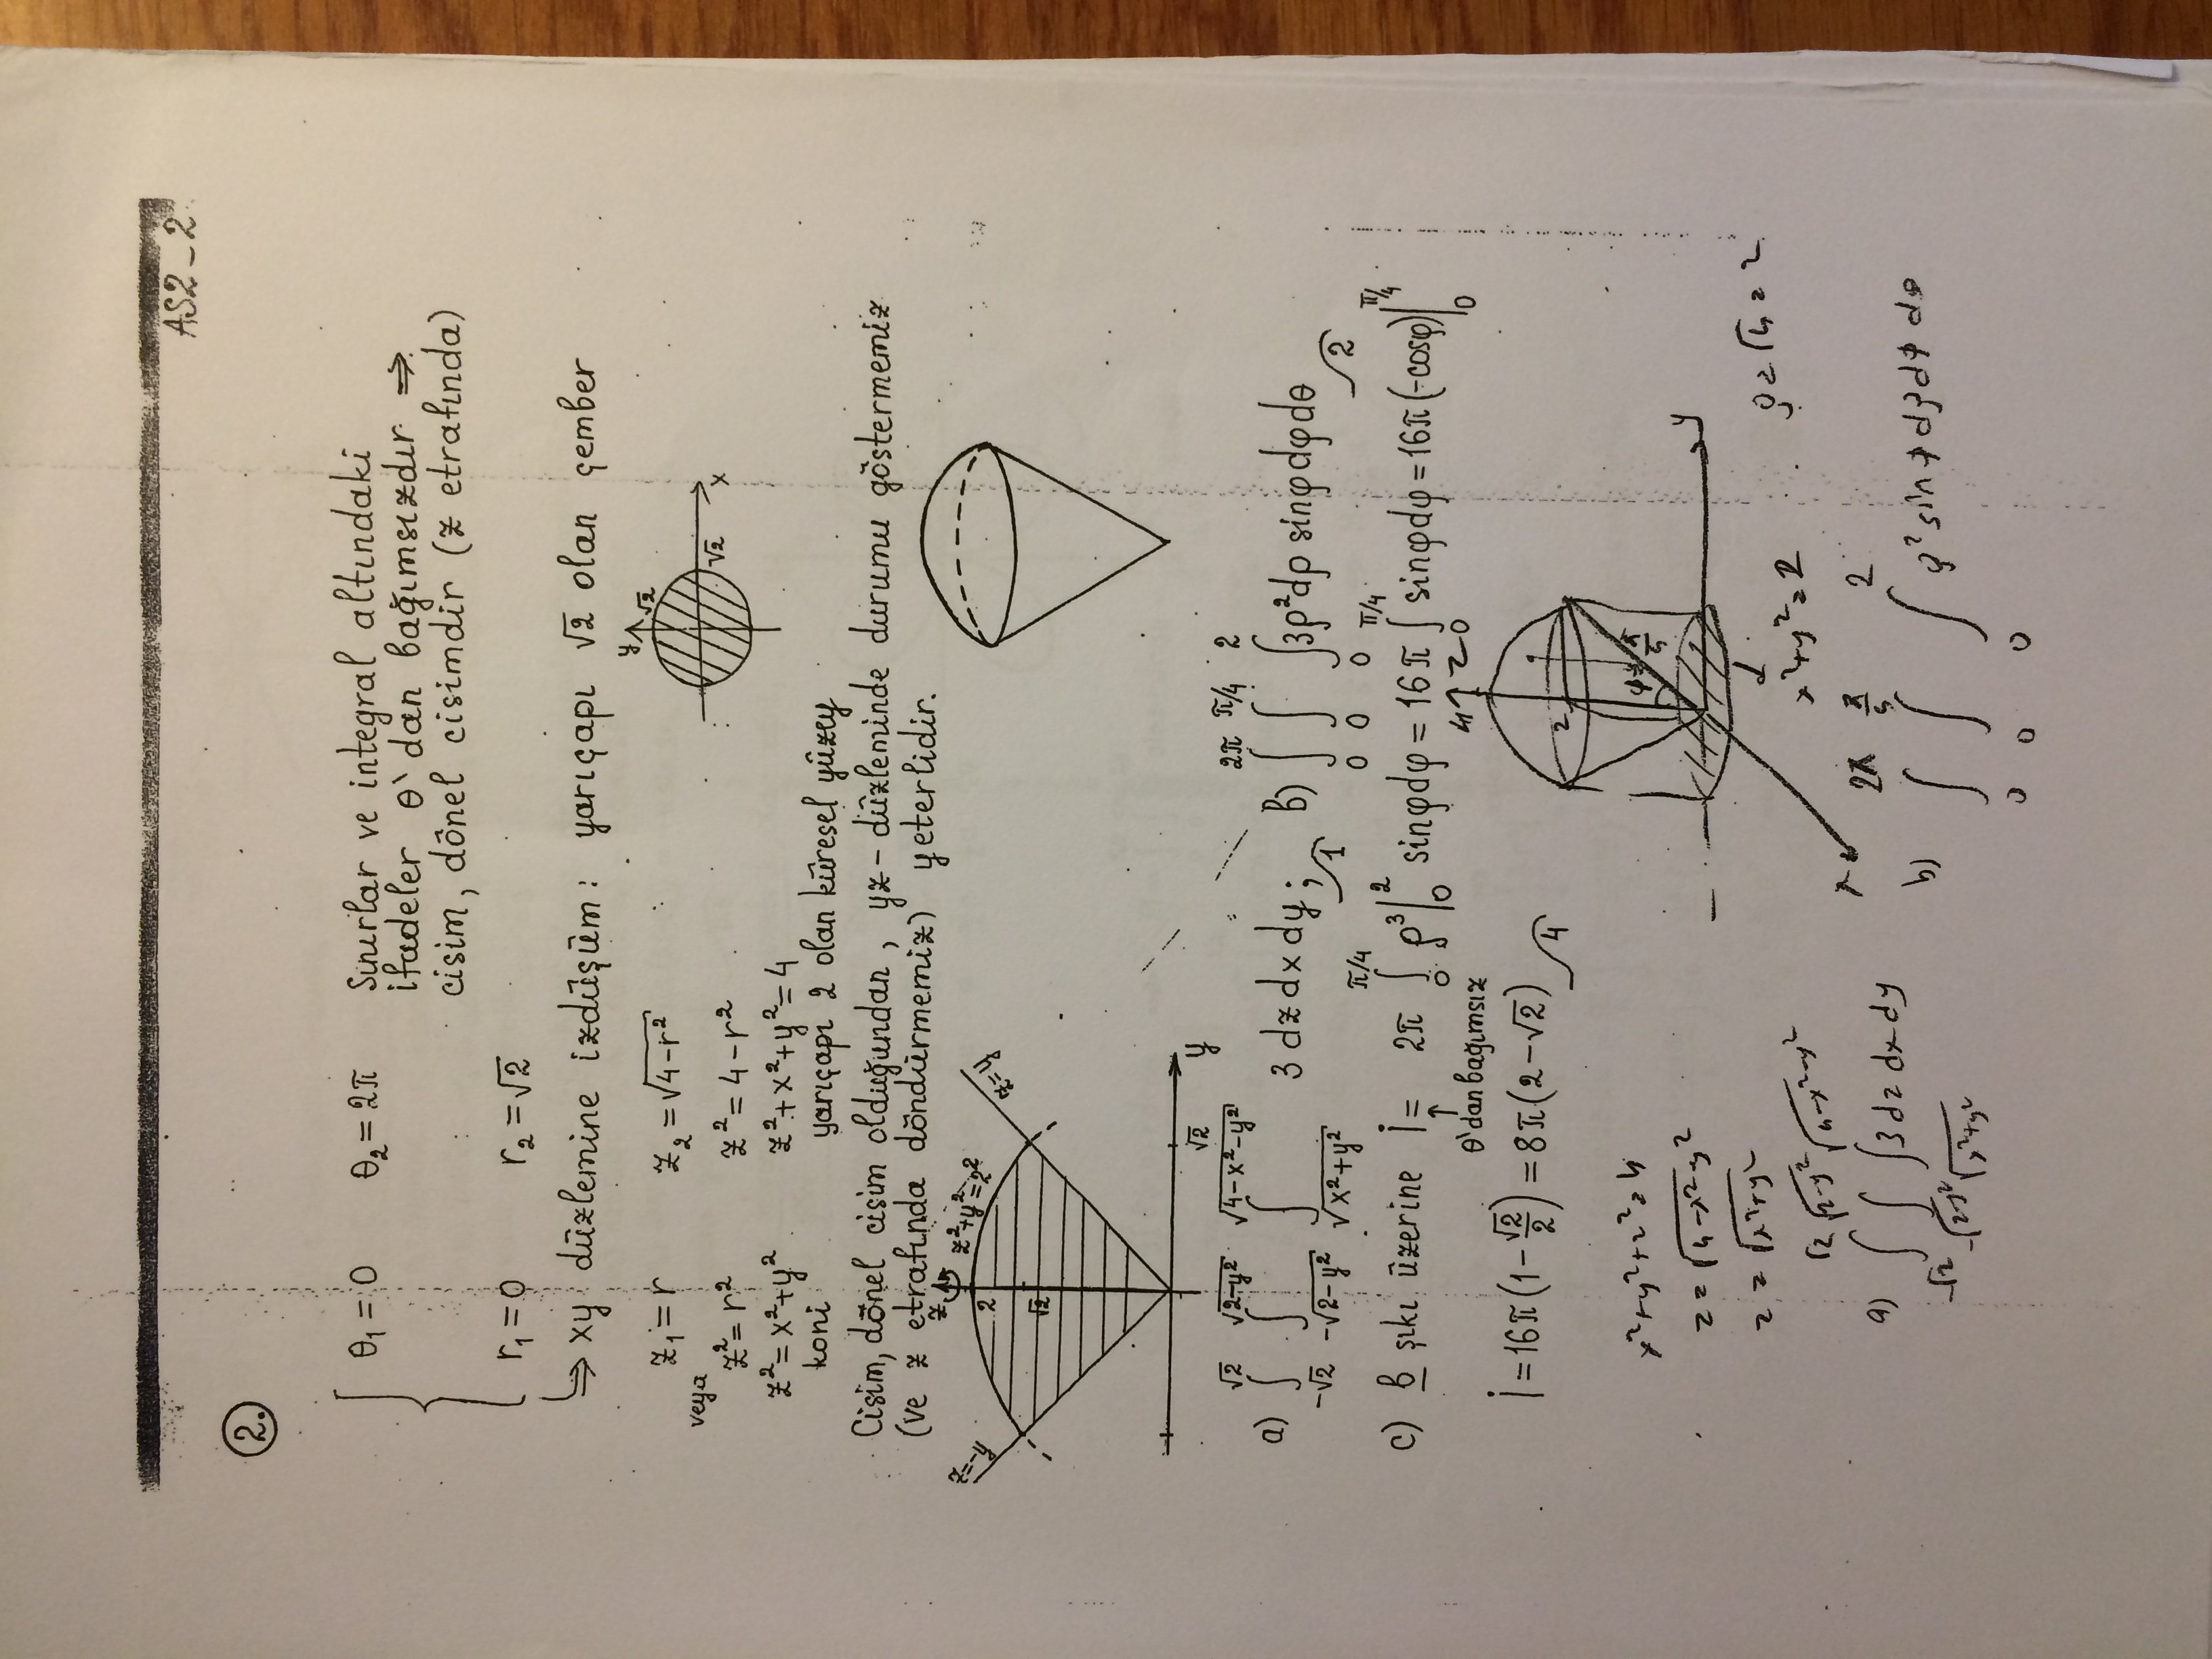 AS2-2
2.
θ₁ = 0 θ₂ = 2π Sınırlar ve integral altındaki
ifadeler θ'dan bağımsızdır ⇒
cisim, dönel cisimdir (z etrafında)
r₁ = 0 r₂ = √2
↳⇒ xy düzlemine izdüşüm: yarıçapı √2 olan çember
z₁ = r z₂ = √(4-r²)
veya
z² = r² z² = 4-r²
z² = x²+y² z²+x²+y² = 4
koni yarıçapı 2 olan küresel yüzey
y √2
√2 x
Cisim, dönel cisim olduğundan, yz-düzleminde durumu göstermemiz
(ve z etrafında döndürmemiz) yeterlidir.
z z²+y²=2²
z=-y 2 z=y
√2
√2 y
a) ∫_{-√2}^{√2} ∫_{-√(2-y²)}^{√(2-y²)} ∫_{√(x²+y²)}^{√(4-x²-y²)} 3 dz dx dy; 1 b) ∫_0^{2π} ∫_0^{π/4} ∫_0^2 3ρ²dρ sinφ dφ dθ 2
c) b şıkı üzerine İ = 2π ∫_0^{π/4} ρ³|_0^2 sinφdφ = 16π ∫_0^{π/4} sinφdφ = 16π(-cosφ)|_0^{π/4}
↑
θ'dan bağımsız
İ = 16π(1-√2/2) = 8π(2-√2) 4
4 z
2
φ=π/4
y
x
x²+y²=2
ρ=√4=2
x²+y²+z²=4
z=√(4-x²-y²)
z=√(x²+y²)
a) ∫_{-√2}^{√2} ∫_{-√(2-y²)}^{√(2-y²)} ∫_{√(x²+y²)}^{√(4-x²-y²)} 3 dz dx dy
b) ∫_0^{2π} ∫_0^{π/4} ∫_0^2 ρ² sinφ dρ dφ dθ